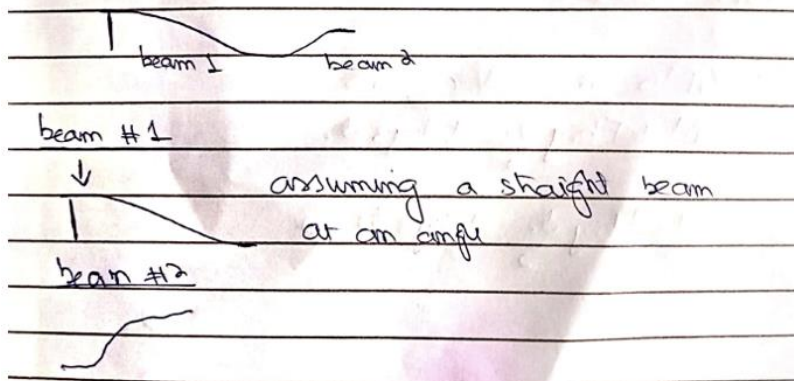 beam 1 beam 2
beam #1
assuming a straight beam
at an angle
beam #2